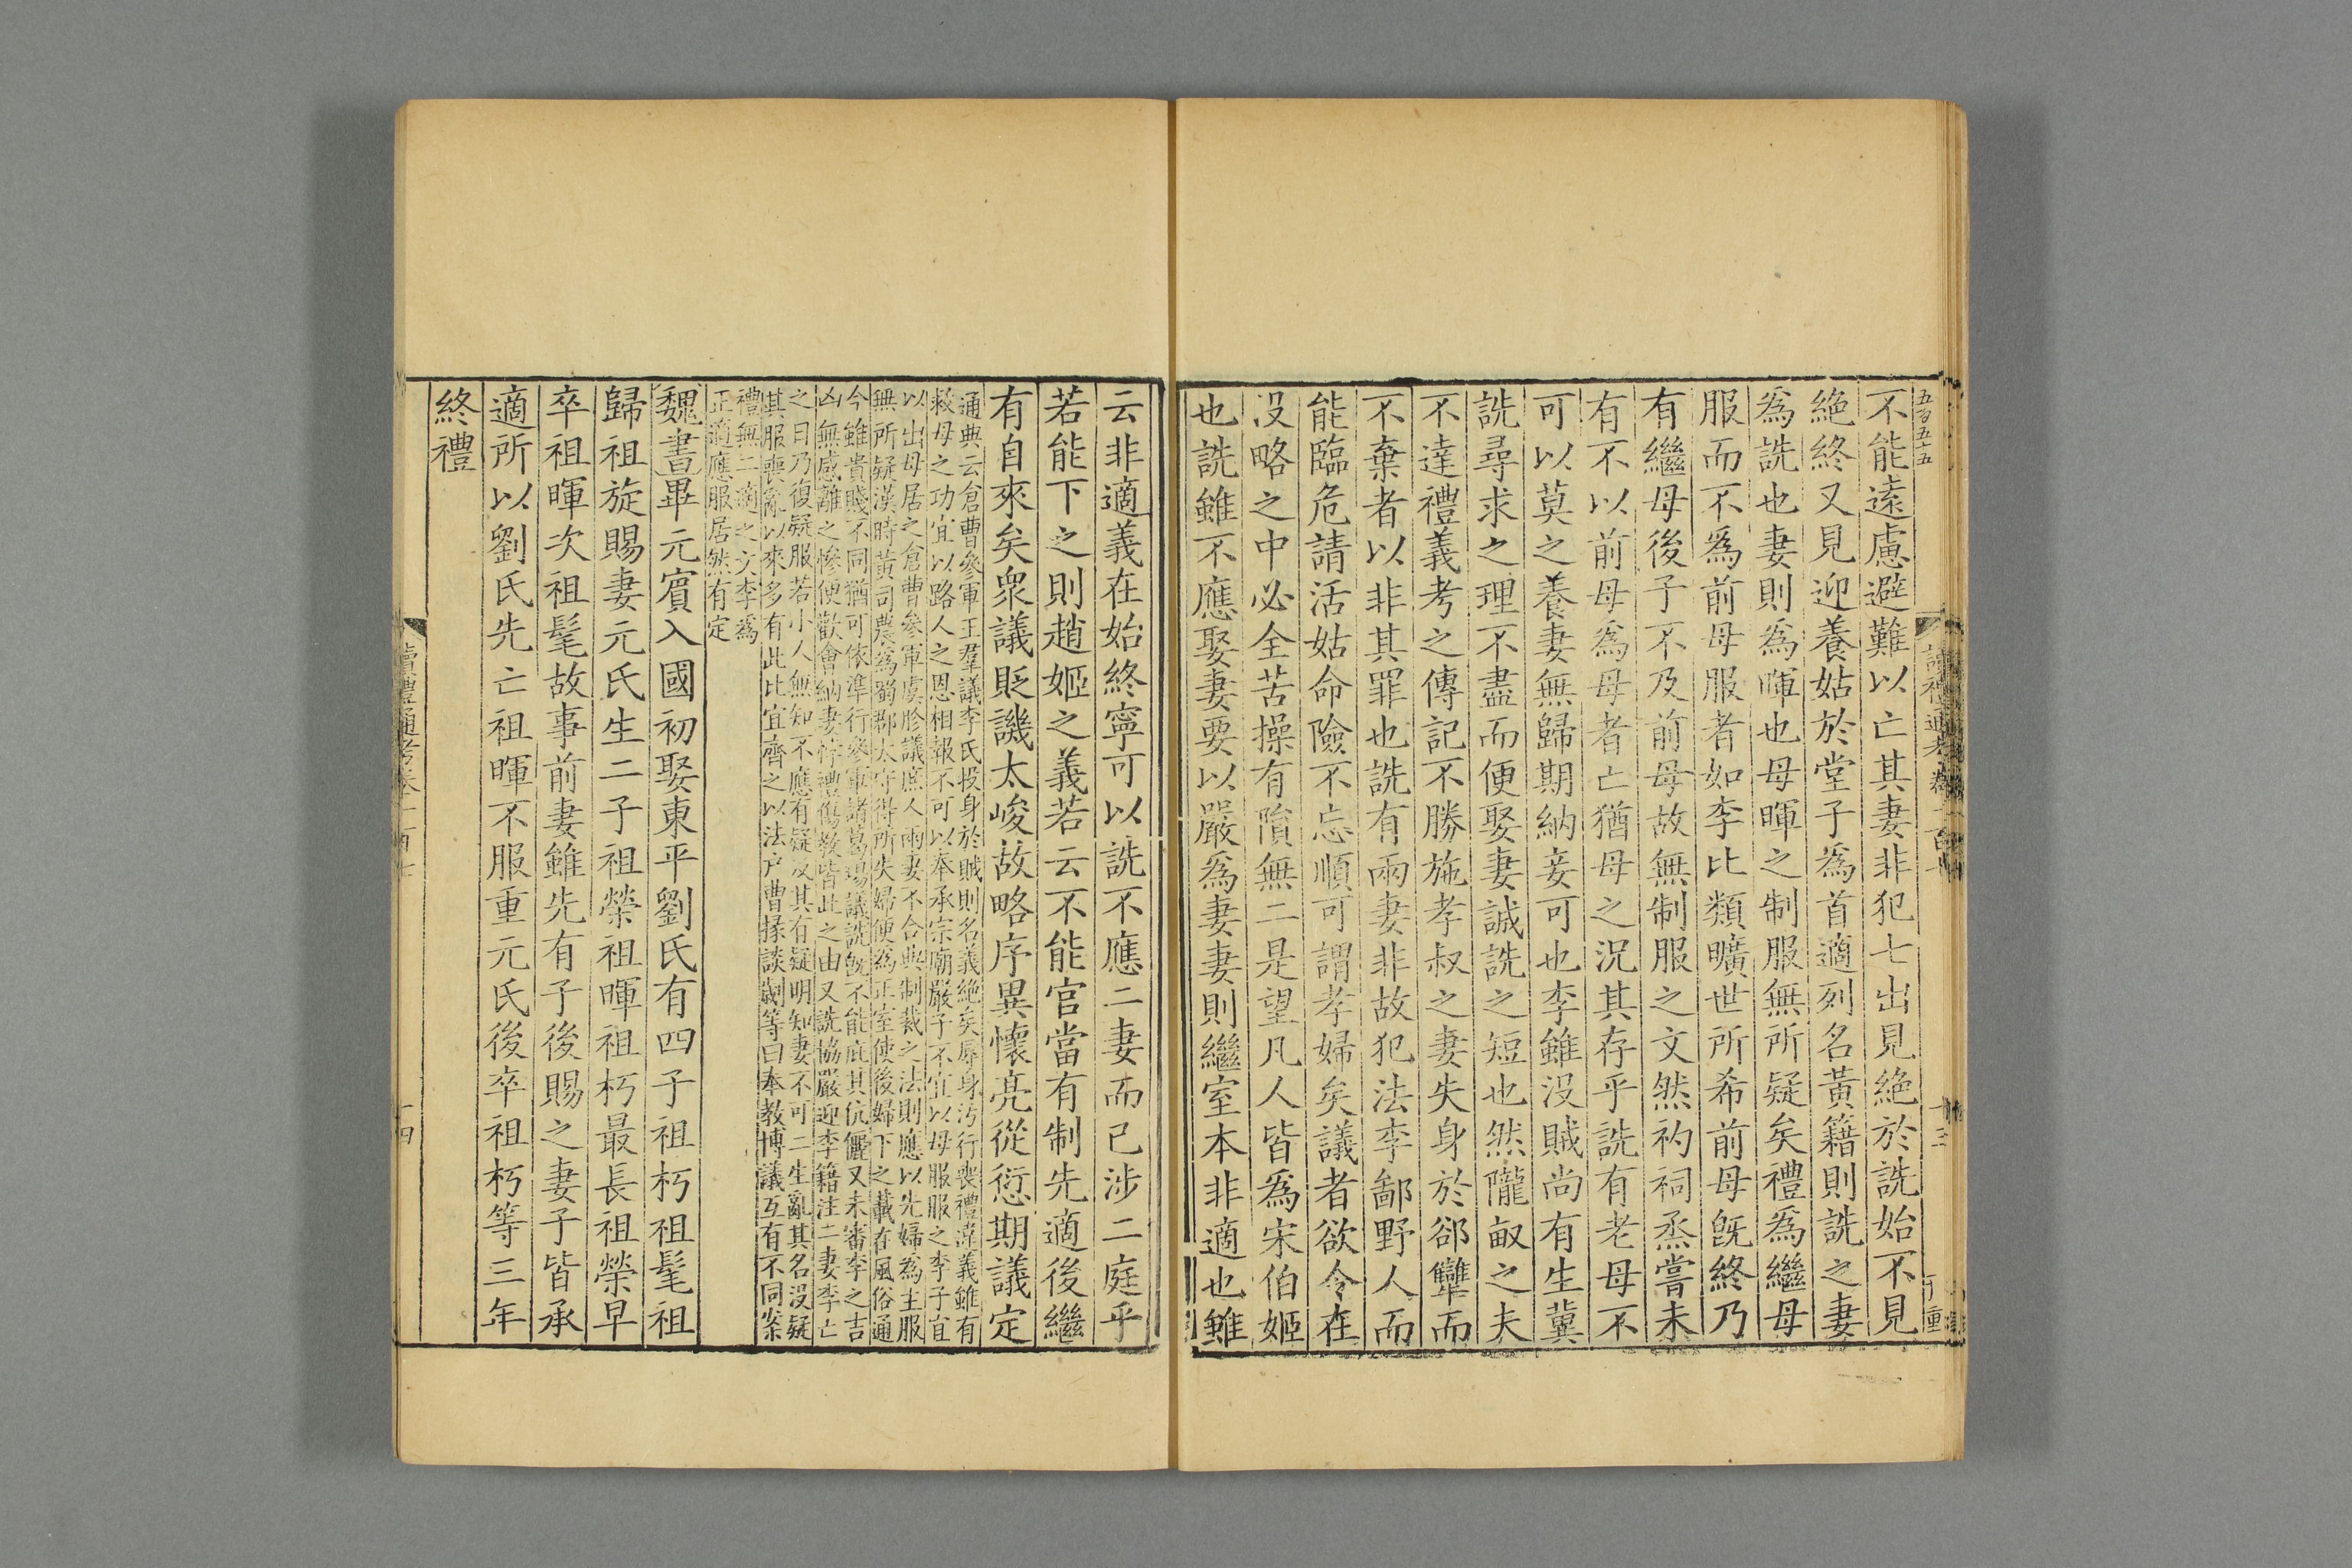 五百五十五
讀禮通考卷一百七
十三
不能遠慮避難以亡其妻非犯七出見絶於詵始不見
絶終又見迎養姑於堂子爲首適列名黃籍則詵之妻
爲詵也妻則爲暉也母暉之制服無所疑矣禮爲繼母
服而不爲前母服者如李比類曠世所希前母旣終乃
有繼母後子不及前母故無制服之文然礿祠烝嘗未
有不以前母爲母者亡猶母之況其存乎詵有老母不
可以莫之養妻無歸期納妾可也李雖沒賊尚有生冀
詵尋求之理不盡而便娶妻誠詵之短也然隴畝之夫
不達禮義考之傳記不勝施孝叔之妻失身於郤犨而
不棄者以非其罪也詵有兩妻非故犯法李鄙野人而
能臨危請活姑命險不忘順可謂孝婦矣議者欲令在
沒略之中必全苦操有隕無二是望凡人皆爲宋伯姬
也詵雖不應娶妻要以嚴爲妻妻則繼室本非適也雖
云非適義在始終寧可以詵不應二妻而已涉二庭乎
若能下之則趙姬之義若云不能官當有制先適後繼
有自來矣衆議貶譏太峻故略序異懷亮從愆期議定
通典云倉曹參軍王羣議李氏投身於賊則名義絶矣辱身汚行喪禮違義雖有
救母之功宜以路人之恩相報不可以奉承宗廟嚴子不宜以母服服之李子宜
以出母居之倉曹參軍虞眕議庶人兩妻不合典制裁之法則應以先婦爲主服
無所疑漢時黃司農爲蜀郡太守得所失婦便爲正室使後婦下之載在風俗通
今雖貴賤不同猶可依準行參軍諸葛瑒議詵旣不能庇其伉儷又未審李之吉
凶無感離之慘便歡會納妻悖禮傷敎皆此之由又詵協嚴迎李籍注二妻李亡
之日乃復疑服若小人無知不應有疑及其有疑明知妻不可二生亂其名沒疑
其服喪亂以來多有此比宜齊之以法戶曹掾談劌等曰奉教博議互有不同案
禮無二適之文李爲
正適應服居然有定
魏書畢元賓入國初娶東平劉氏有四子祖朽祖髦祖
歸祖旋賜妻元氏生二子祖榮祖暉祖朽最長祖榮早
卒祖暉次祖髦故事前妻雖先有子後賜之妻子皆承
適所以劉氏先亡祖暉不服重元氏後卒祖朽等三年
終禮
讀禮通考卷一百七
十四